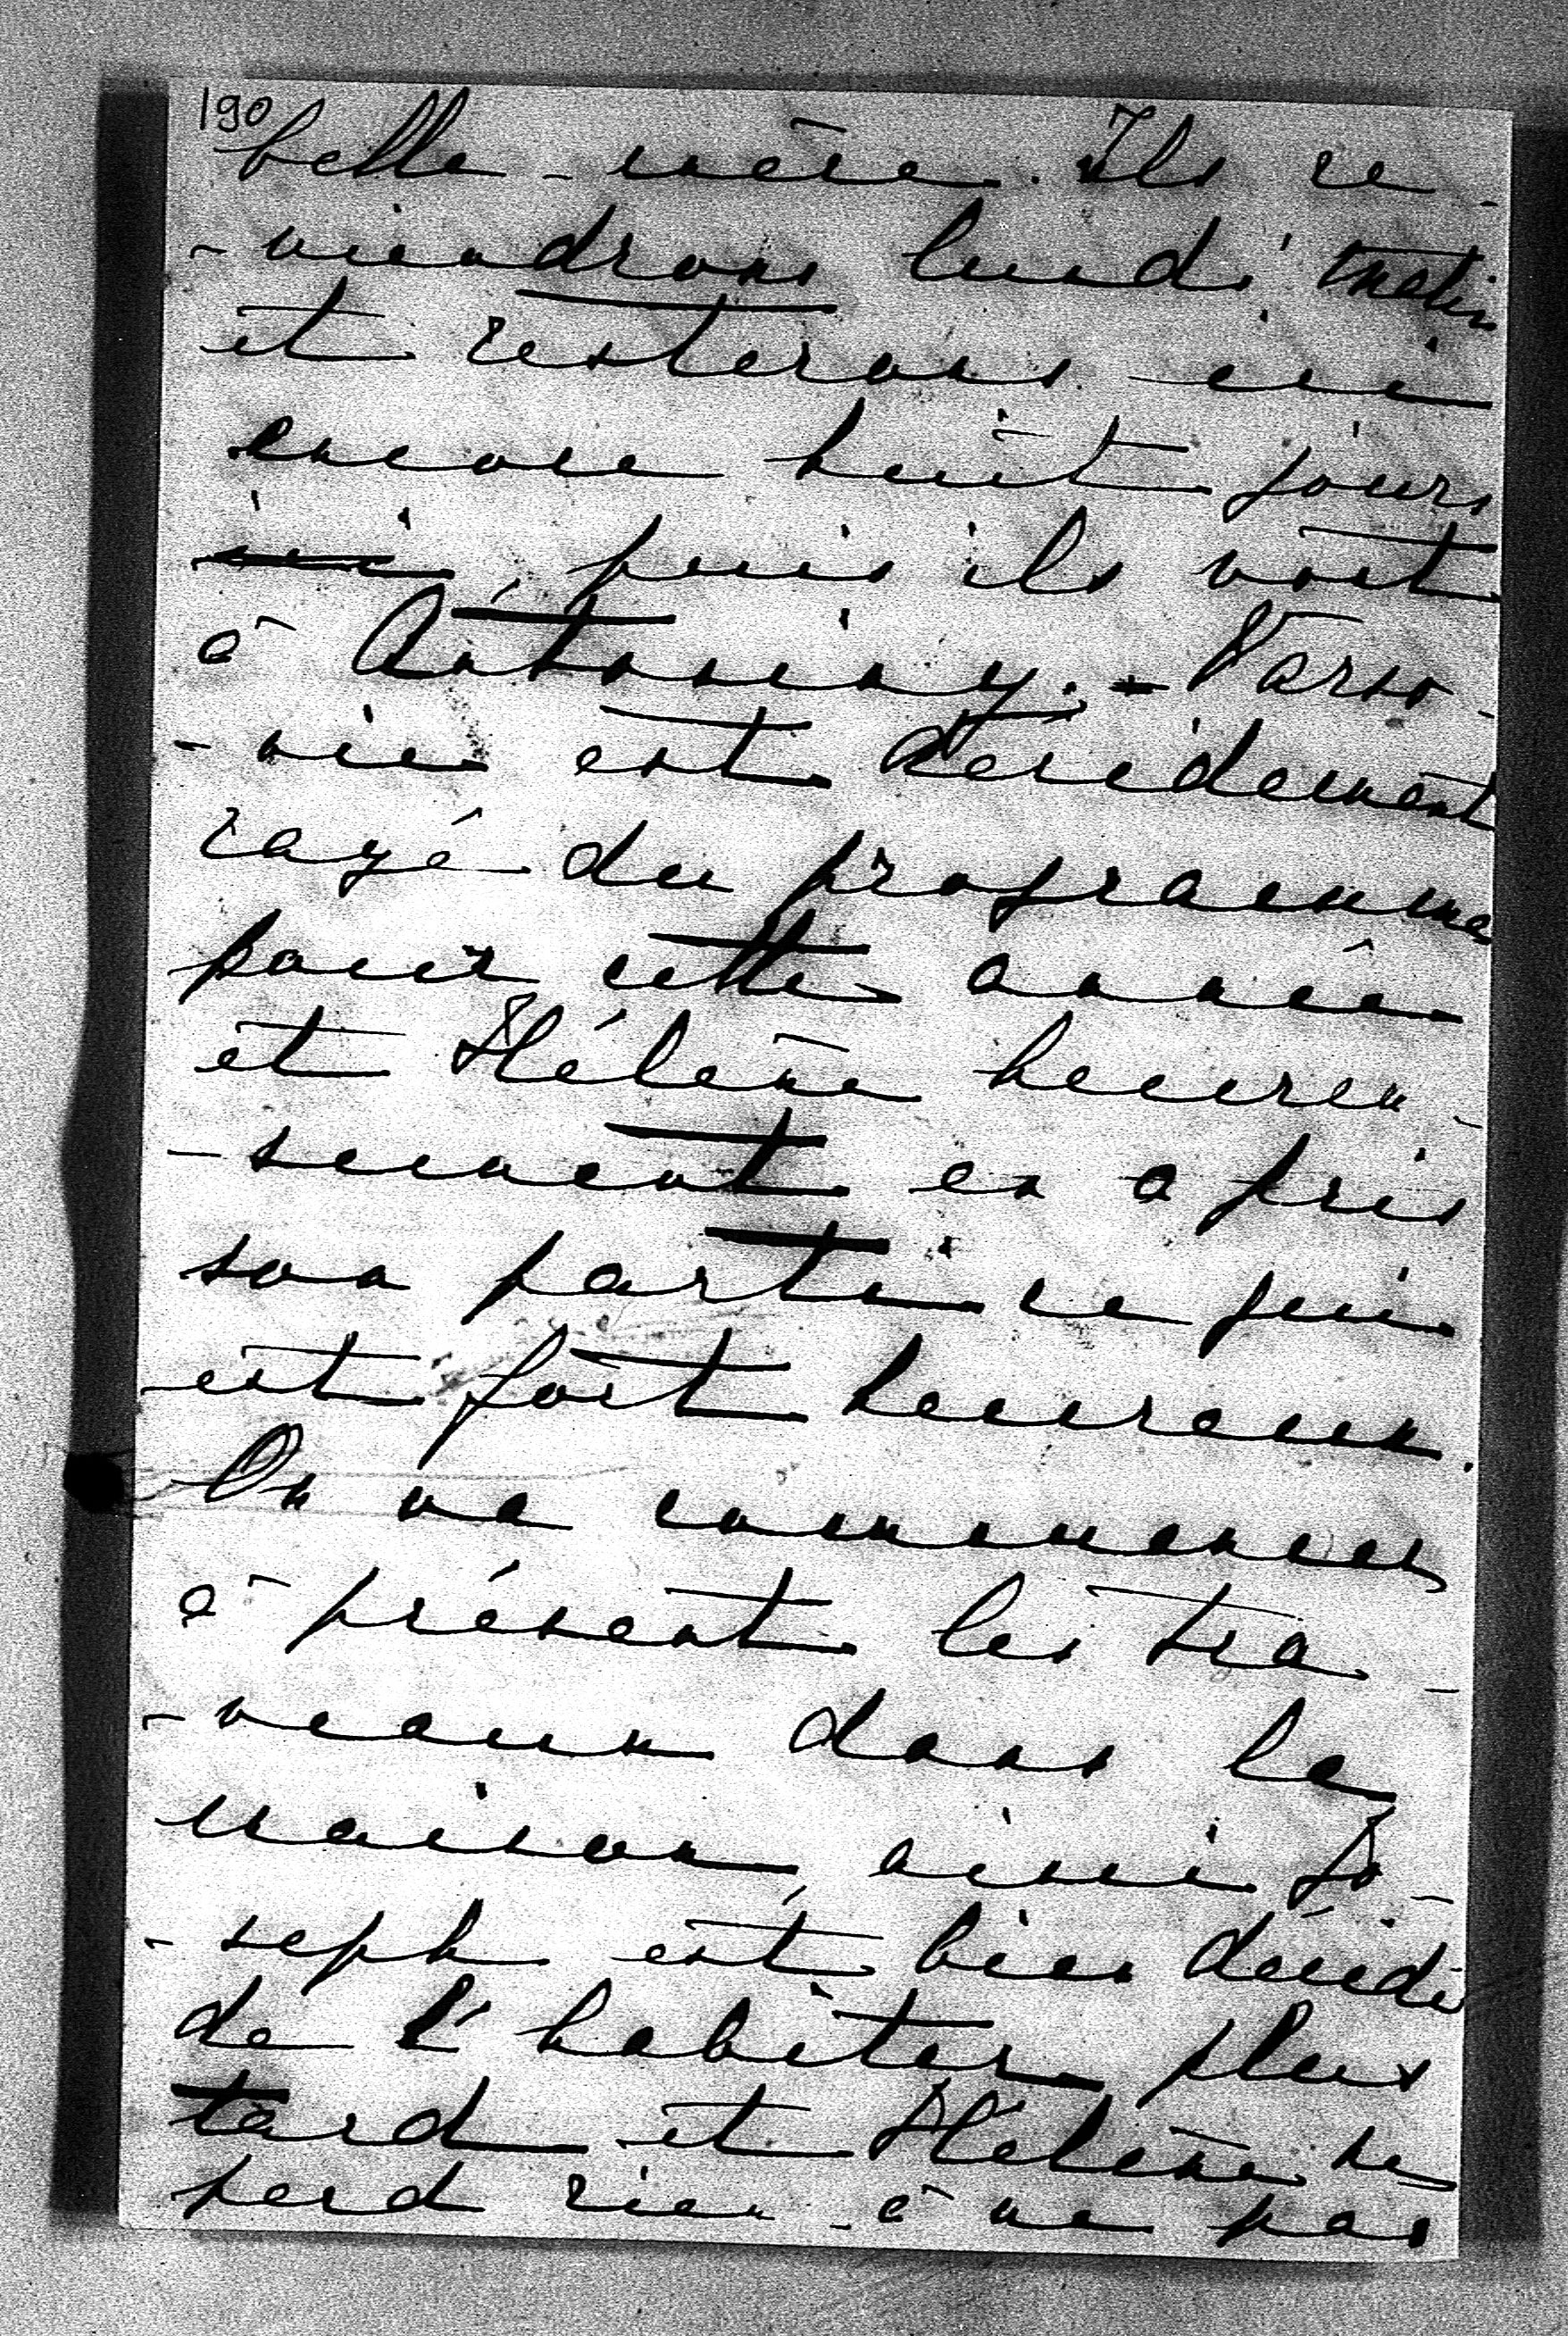 190
belle-mère. Ils re-
-viendrons lundi matin
et resterons ici
encore huit jours
ici, puis ils vont
à Antoniny. - Varso-
-vie est décidement
rayé du programme
pour cette année
et Hélène heureu-
-sement en a pris
son parti ce qui
est fort heureux.
On va commencer
à présent les tra-
-veaux dans la
maison, ainsi Jo-
-seph est bien décidé
de l'habiter plus
tard et Hélène ne
perd rien à ne pas